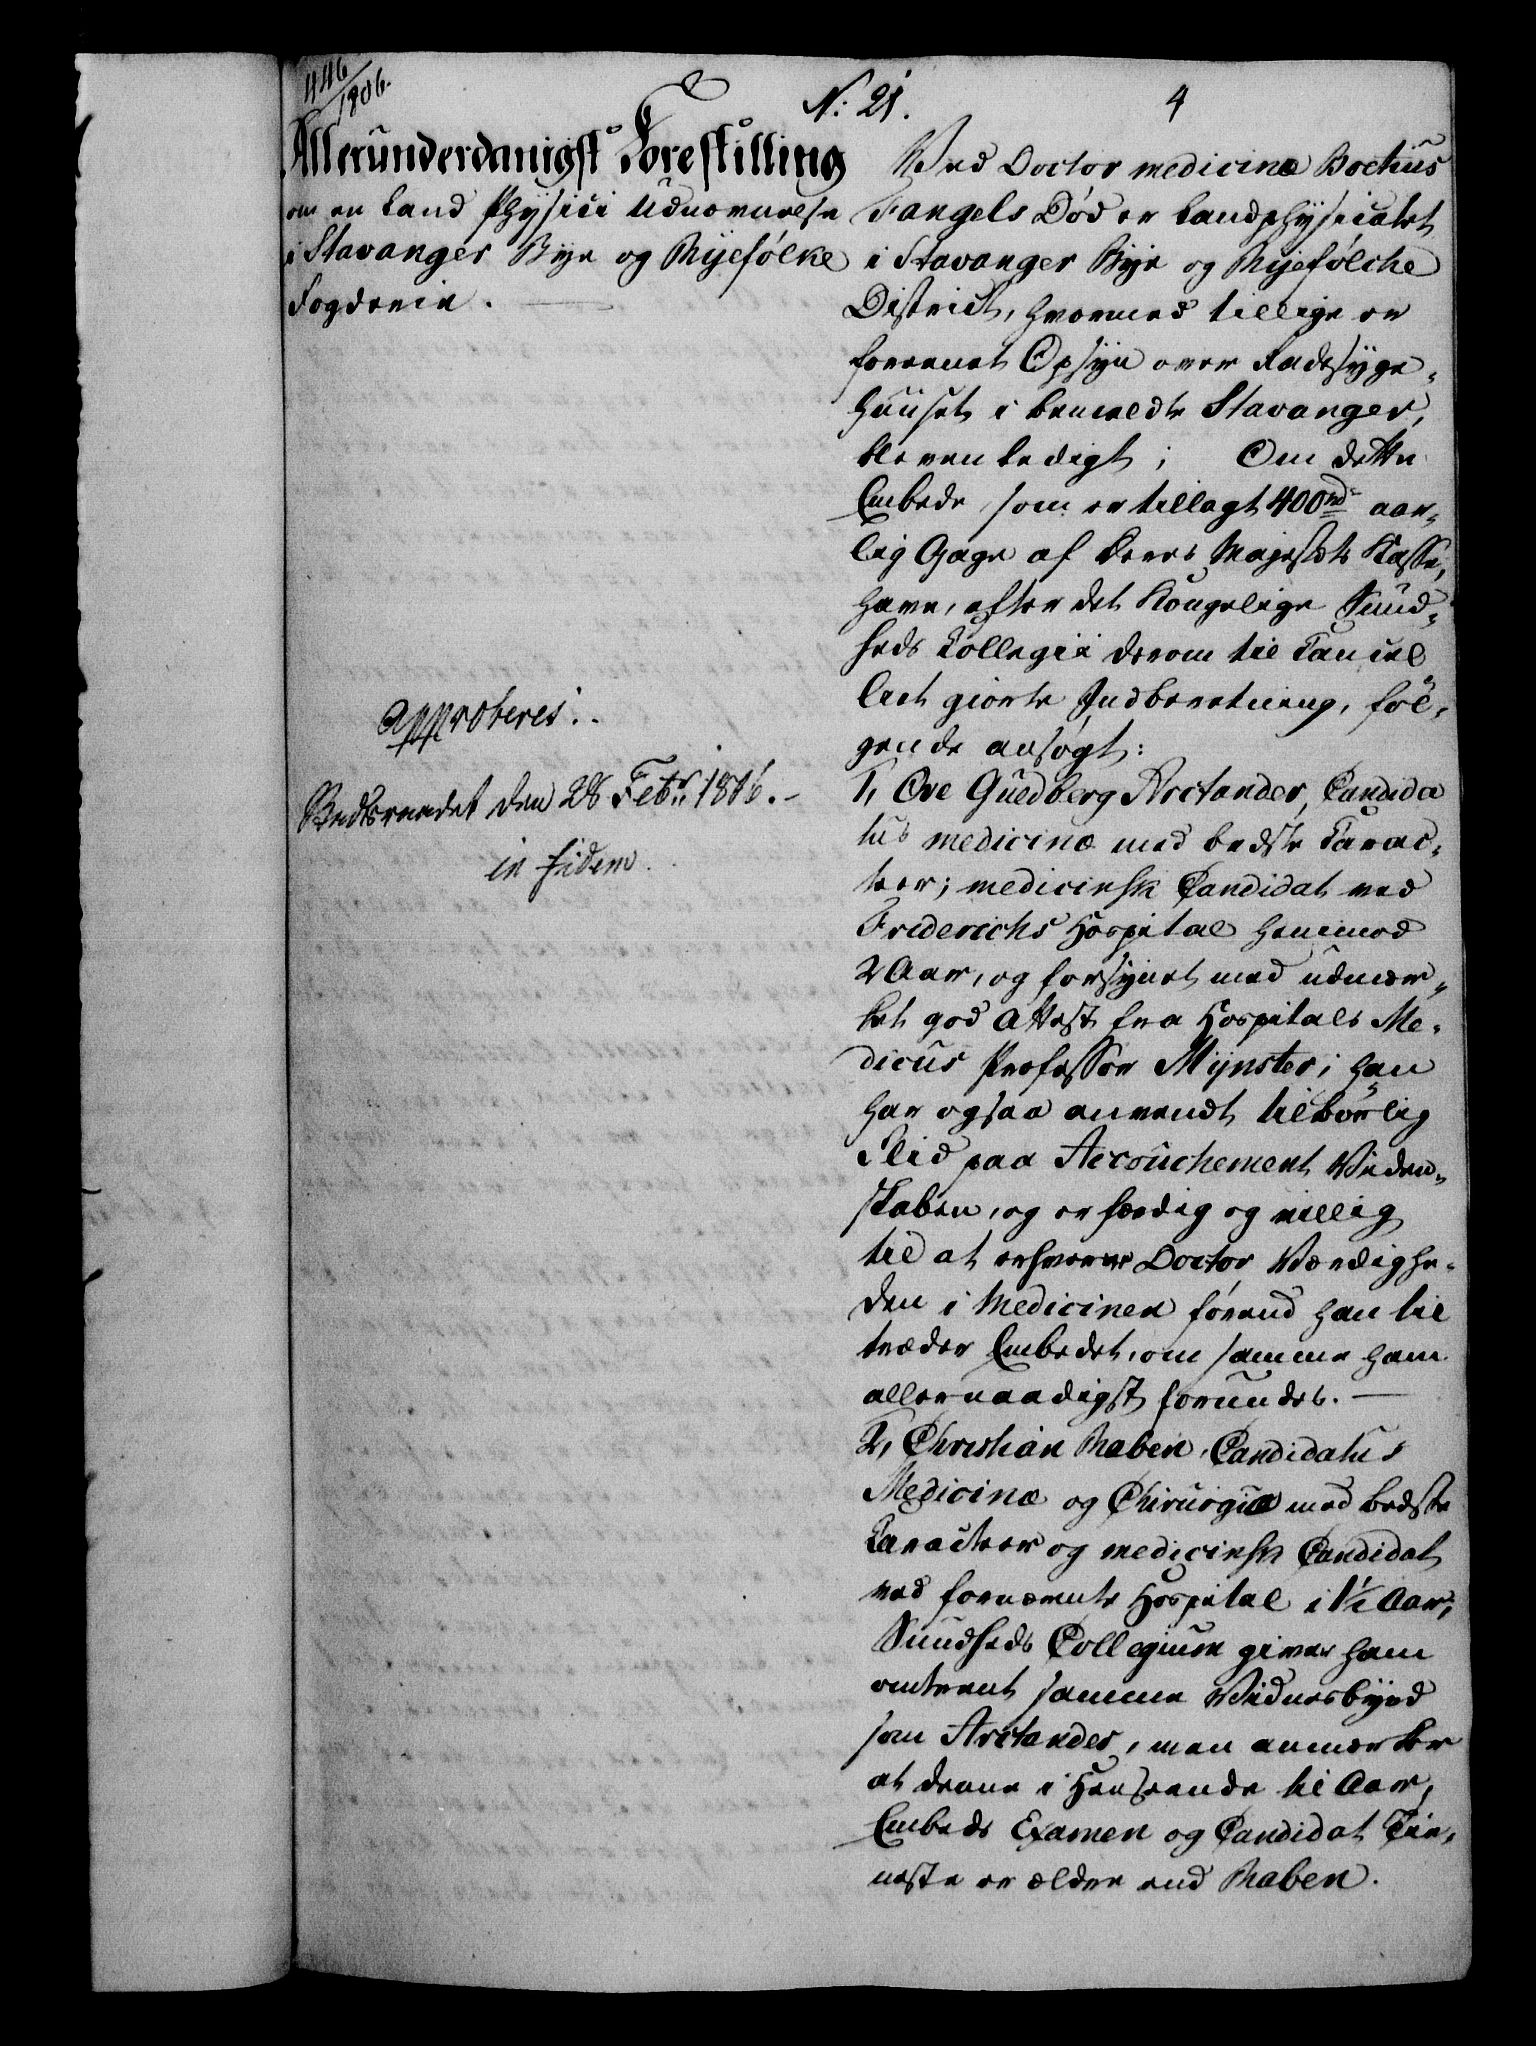 446/1806.
N: 21.
4
Alleründerdanigst Forestilling
om en Land Physici Udnævnelse
i Stavanger Bye og Ryefølke
Fogderie.
approberes.
Redsraadet den 28 Febr: 1806.
in fidem.
Ved Doctor medicinæ Boetius
Fangels Død er Landphysicatet
i Stavanger Bye og Ryefølche
District, hvormed tillige er
foreenet Opsyn over Radesyge-
huuset i bemeldte Stavanger,
bleven ledigt; Om dette
Embede som er tillagt 400 rd aar-
lig Gage af Deres Majestæts Kasse,
have, efter det Kongelige Sund-
heds Collegii derom til Cancel
liet giorte Indberetning, føl-
gende ansøgt:
1, Ove Guldberg Arctander, Candida
tus medicinæ med bedste Carac-
teer; medicinsk Candidat ved
Friderichs Hospital henimod
2 Aar, og forsynet med udmær-
ket god Attest fra Hospitals Me-
dicus Professor Mynster; han
har ogsaa anvendt tilbørlig
Flid paa Accouchement Viden-
skaben, og er færdig og villig
til at erhverve Doctor Værdighe-
den i Medicinen førend han til
træder Embedet, om samme ham
allernaadigst forundes.
2, Christian Raben, Candidatus
Medicinæ og Chirurgiæ med bedste
Caracteer og medicinsk Candidat
ved fornævnte Hospital i 1½ Aar;
Sundheds Collegium giver ham
omtrent samme Vidnesbyrd
som Arctander, men anmærker
at denne i Henseende til Aar,
Embeds Examen og Candidat Tie-
neste er ældre end Raben.